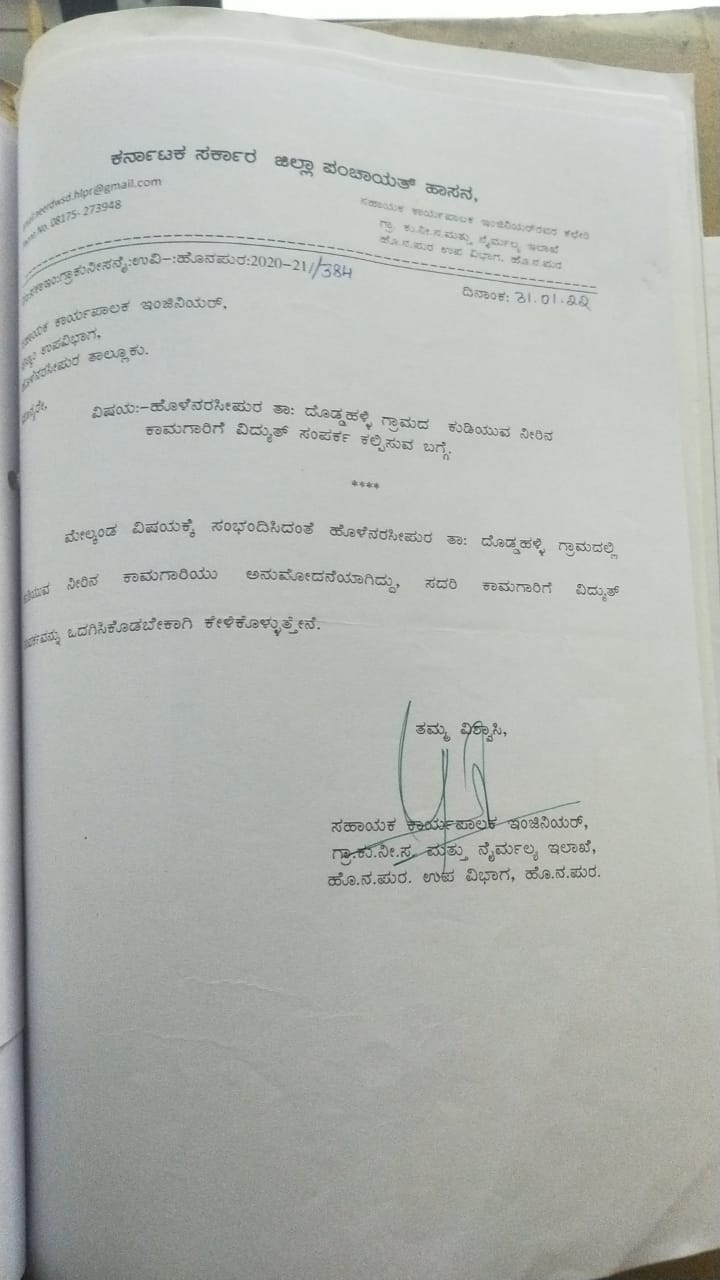 ಕರ್ನಾಟಕ ಸರ್ಕಾರ ಜಿಲ್ಲಾ ಪಂಚಾಯತ್ ಹಾಸನ,
hlpr@gmail.com
No. 08175- 273948
ಸಹಾಯಕ ಕಾರ್ಯಪಾಲಕ ಇಂಜಿನಿಯರ್‌ರವರ ಕಛೇರಿ
ಗ್ರಾ. ಕು.ನೀ.ಸ.ಮತ್ತು ನೈರ್ಮಲ್ಯ ಇಲಾಖೆ
ಹೊ.ನ.ಪುರ ಉಪ ವಿಭಾಗ, ಹೊ.ನ.ಪುರ
ಗ್ರಾಕುನೀಸನೈ:ಉವಿ-:ಹೊನಪುರ:2020-21//384
ದಿನಾಂಕ: 31.01.22
ಕಾರ್ಯಪಾಲಕ ಇಂಜಿನಿಯರ್,
ಉಪವಿಭಾಗ,
ತಾಲ್ಲೂಕು.
ವಿಷಯ:-ಹೊಳೆನರಸೀಪುರ ತಾ: ದೊಡ್ಡಹಳ್ಳಿ ಗ್ರಾಮದ ಕುಡಿಯುವ ನೀರಿನ
ಕಾಮಗಾರಿಗೆ ವಿದ್ಯುತ್ ಸಂಪರ್ಕ ಕಲ್ಪಿಸುವ ಬಗ್ಗೆ.
****
ಮೇಲ್ಕಂಡ ವಿಷಯಕ್ಕೆ ಸಂಭಂದಿಸಿದಂತೆ ಹೊಳೆನರಸೀಪುರ ತಾ: ದೊಡ್ಡಹಳ್ಳಿ ಗ್ರಾಮದಲ್ಲಿ
ನೀರಿನ ಕಾಮಗಾರಿಯು ಅನುಮೋದನೆಯಾಗಿದ್ದು, ಸದರಿ ಕಾಮಗಾರಿಗೆ ವಿದ್ಯುತ್
ಒದಗಿಸಿಕೊಡಬೇಕಾಗಿ ಕೇಳಿಕೊಳ್ಳುತ್ತೇನೆ.
ತಮ್ಮ ವಿಶ್ವಾಸಿ,
ಸಹಾಯಕ ಕಾರ್ಯಪಾಲಕ ಇಂಜಿನಿಯರ್,
ಗ್ರಾ.ಕು.ನೀ.ಸ. ಮತ್ತು ನೈರ್ಮಲ್ಯ ಇಲಾಖೆ,
ಹೊ.ನ.ಪುರ. ಉಪ ವಿಭಾಗ, ಹೊ.ನ.ಪುರ.